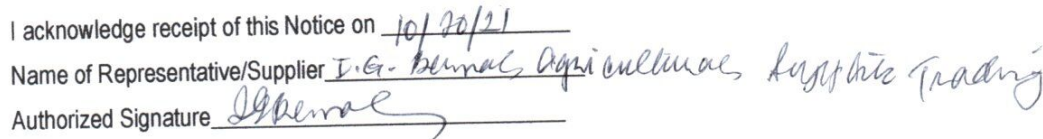 I acknowledge receipt of this Notice on 10/20/21
Name of Representative/Supplier I.G. Bernal Agricultural Trading
Authorized Signature IGBernal